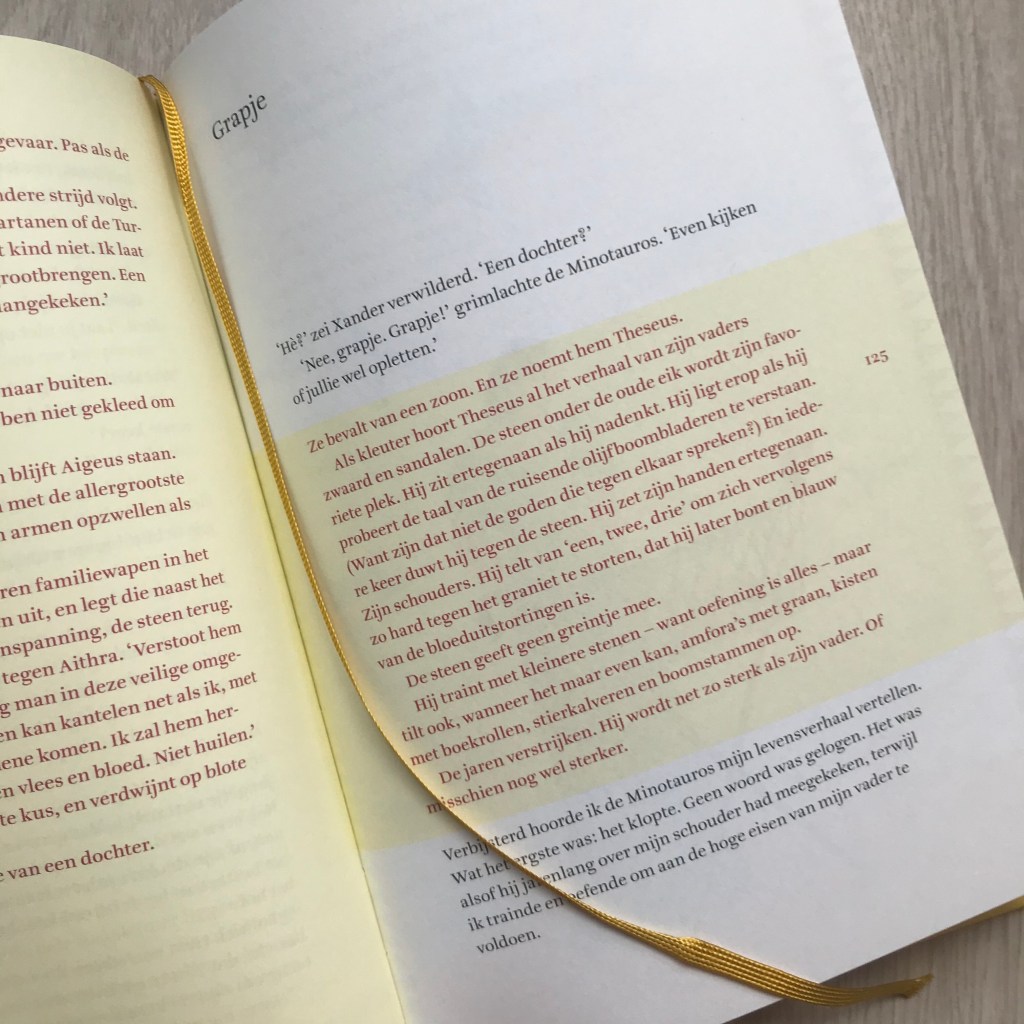 gevaar. Pas als de
ndere strijd volgt.
artanen of de Tur-
t kind niet. Ik laat
rootbrengen. Een
angekeken.’
naar buiten.
ben niet gekleed om
n blijft Aigeus staan.
met de allergrootste
n armen opzwellen als
ren familiewapen in het
n uit, en legt die naast het
nspanning, de steen terug.
tegen Aithra. ‘Verstoot hem
g man in deze veilige omge-
en kan kantelen net als ik, met
ene komen. Ik zal hem her-
n vlees en bloed. Niet huilen.’
te kus, en verdwijnt op blote
e van een dochter.
Grapje
‘Hè?’ zei Xander verwilderd. ‘Een dochter?’
‘Nee, grapje. Grapje!’ grimlachte de Minotauros. ‘Even kijken
of jullie wel opletten.’
Ze bevalt van een zoon. En ze noemt hem Theseus.
Als kleuter hoort Theseus al het verhaal van zijn vaders
zwaard en sandalen. De steen onder de oude eik wordt zijn favo-
riete plek. Hij zit ertegenaan als hij nadenkt. Hij ligt erop als hij
probeert de taal van de ruisende olijfboombladeren te verstaan.
(Want zijn dat niet de goden die tegen elkaar spreken?) En iede-
re keer duwt hij tegen de steen. Hij zet zijn handen ertegenaan.
Zijn schouders. Hij telt van ‘een, twee, drie’ om zich vervolgens
zo hard tegen het graniet te storten, dat hij later bont en blauw
van de bloeduitstortingen is.
De steen geeft geen greintje mee.
Hij traint met kleinere stenen – want oefening is alles – maar
tilt ook, wanneer het maar even kan, amfora’s met graan, kisten
met boekrollen, stierkalveren en boomstammen op.
De jaren verstrijken. Hij wordt net zo sterk als zijn vader. Of
misschien nog wel sterker.
Verbijsterd hoorde ik de Minotauros mijn levensverhaal vertellen.
Wat het ergste was: het klopte. Geen woord was gelogen. Het was
alsof hij jarenlang over mijn schouder had meegekeken, terwijl
ik trainde en oefende om aan de hoge eisen van mijn vader te
voldoen.
125